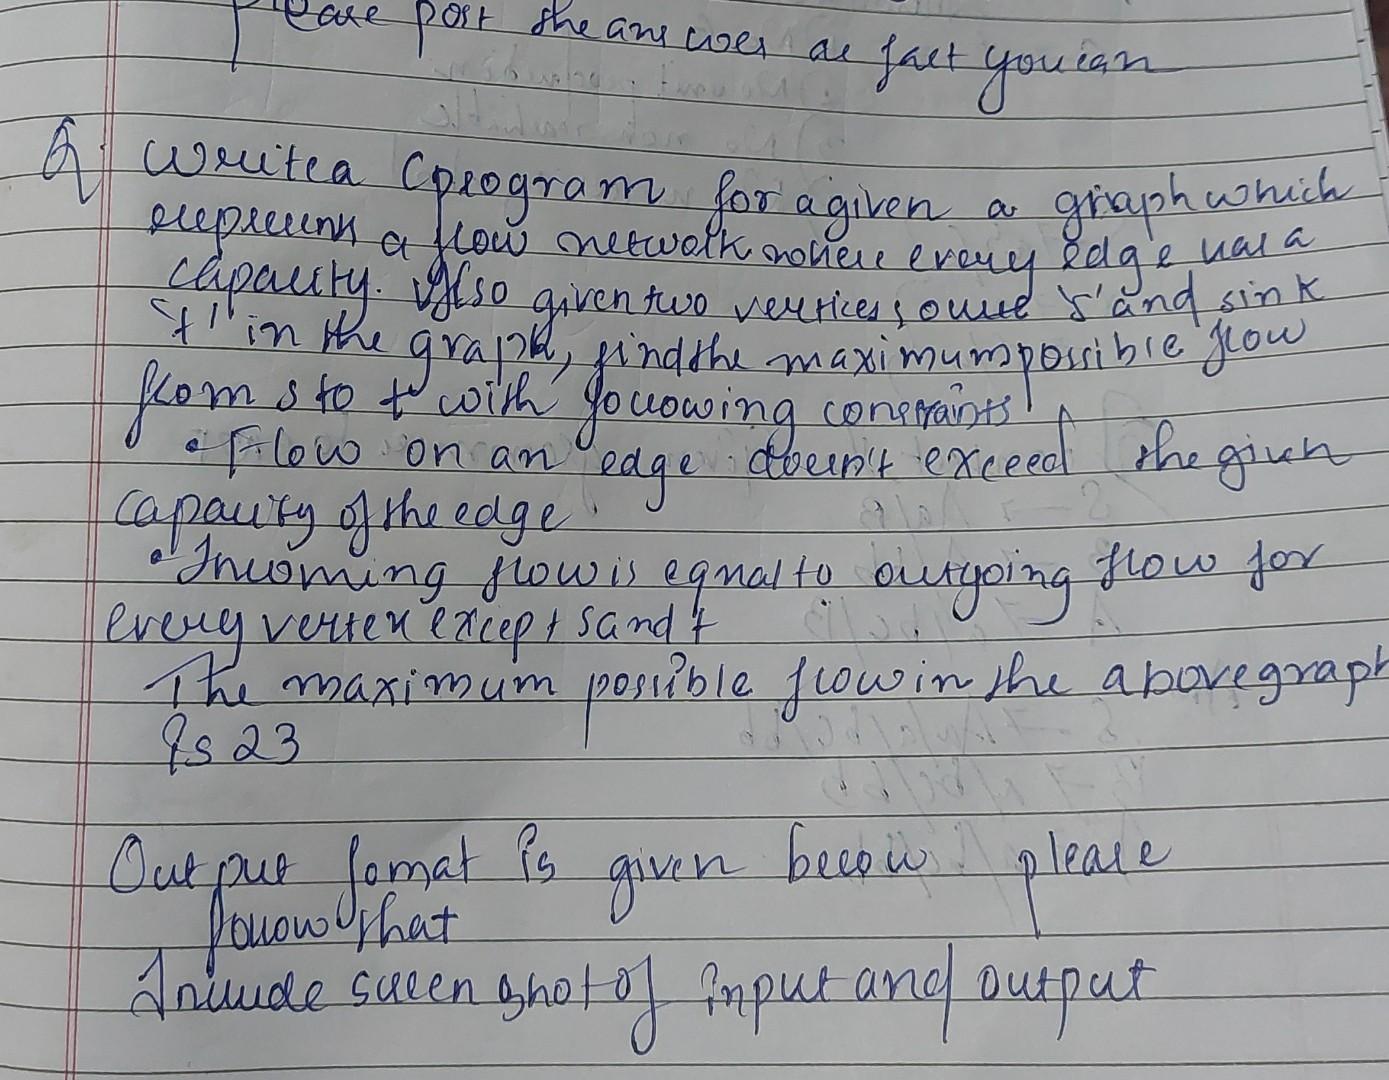 Please post the answer as fast you can
Q Write a C program for a given a graph which
represents a flow network where every edge has a
capacity. Also given two vertices source 's' and sink
't' in the graph, find the maximum possible flow
from s to t with following constraints
• Flow on an edge doesn't exceed the given
capacity of the edge.
• Incoming flow is equal to outgoing flow for
every vertex except s and t
The maximum possible flow in the above graph
Is 23
Output fomat is given below. please
follow that
Include screen shot of input and output